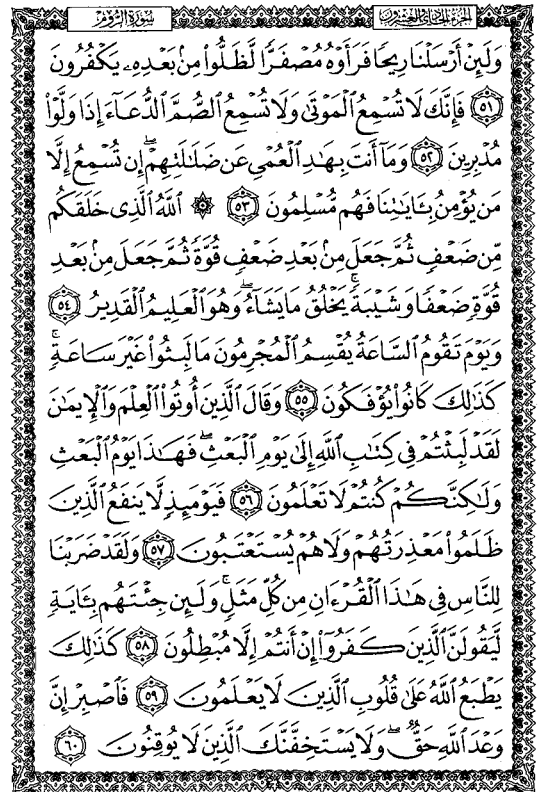 الجزء الحادي والعشرون
سورة الروم
وَلَئِنْ أَرْسَلْنَا رِيحًا فَرَأَوْهُ مُصْفَرًّا لَّظَلُّوا۟ مِنۢ بَعْدِهِۦ يَكْفُرُونَ
﴿٥١﴾ فَإِنَّكَ لَا تُسْمِعُ ٱلْمَوْتَىٰ وَلَا تُسْمِعُ ٱلصُّمَّ ٱلدُّعَآءَ إِذَا وَلَّوْا۟
مُدْبِرِينَ ﴿٥٢﴾ وَمَآ أَنتَ بِهَٰدِ ٱلْعُمْىِ عَن ضَلَٰلَتِهِمْ ۖ إِن تُسْمِعُ إِلَّا
مَن يُؤْمِنُ بِـَٔايَٰتِنَا فَهُم مُّسْلِمُونَ ﴿٥٣﴾ ۞ ٱللَّهُ ٱلَّذِى خَلَقَكُم
مِّن ضَعْفٍ ثُمَّ جَعَلَ مِنۢ بَعْدِ ضَعْفٍ قُوَّةً ثُمَّ جَعَلَ مِنۢ بَعْدِ
قُوَّةٍ ضَعْفًا وَشَيْبَةً ۚ يَخْلُقُ مَا يَشَآءُ ۖ وَهُوَ ٱلْعَلِيمُ ٱلْقَدِيرُ ﴿٥٤﴾
وَيَوْمَ تَقُومُ ٱلسَّاعَةُ يُقْسِمُ ٱلْمُجْرِمُونَ مَا لَبِثُوا۟ غَيْرَ سَاعَةٍ ۚ
كَذَٰلِكَ كَانُوا۟ يُؤْفَكُونَ ﴿٥٥﴾ وَقَالَ ٱلَّذِينَ أُوتُوا۟ ٱلْعِلْمَ وَٱلْإِيمَٰنَ
لَقَدْ لَبِثْتُمْ فِى كِتَٰبِ ٱللَّهِ إِلَىٰ يَوْمِ ٱلْبَعْثِ ۖ فَهَٰذَا يَوْمُ ٱلْبَعْثِ
وَلَٰكِنَّكُمْ كُنتُمْ لَا تَعْلَمُونَ ﴿٥٦﴾ فَيَوْمَئِذٍ لَّا يَنفَعُ ٱلَّذِينَ
ظَلَمُوا۟ مَعْذِرَتُهُمْ وَلَا هُمْ يُسْتَعْتَبُونَ ﴿٥٧﴾ وَلَقَدْ ضَرَبْنَا
لِلنَّاسِ فِى هَٰذَا ٱلْقُرْءَانِ مِن كُلِّ مَثَلٍ ۚ وَلَئِن جِئْتَهُم بِـَٔايَةٍ
لَّيَقُولَنَّ ٱلَّذِينَ كَفَرُوٓا۟ إِنْ أَنتُمْ إِلَّا مُبْطِلُونَ ﴿٥٨﴾ كَذَٰلِكَ
يَطْبَعُ ٱللَّهُ عَلَىٰ قُلُوبِ ٱلَّذِينَ لَا يَعْلَمُونَ ﴿٥٩﴾ فَٱصْبِرْ إِنَّ
وَعْدَ ٱللَّهِ حَقٌّ ۖ وَلَا يَسْتَخِفَّنَّكَ ٱلَّذِينَ لَا يُوقِنُونَ ﴿٦٠﴾